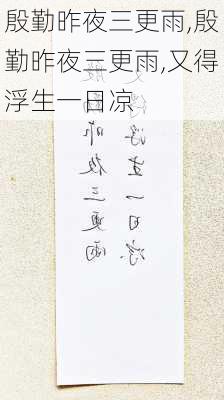 殷勤昨夜三更雨,殷
勤昨夜三更雨,又得
浮生一日凉
殷勤昨夜三更雨
又得浮生一日凉